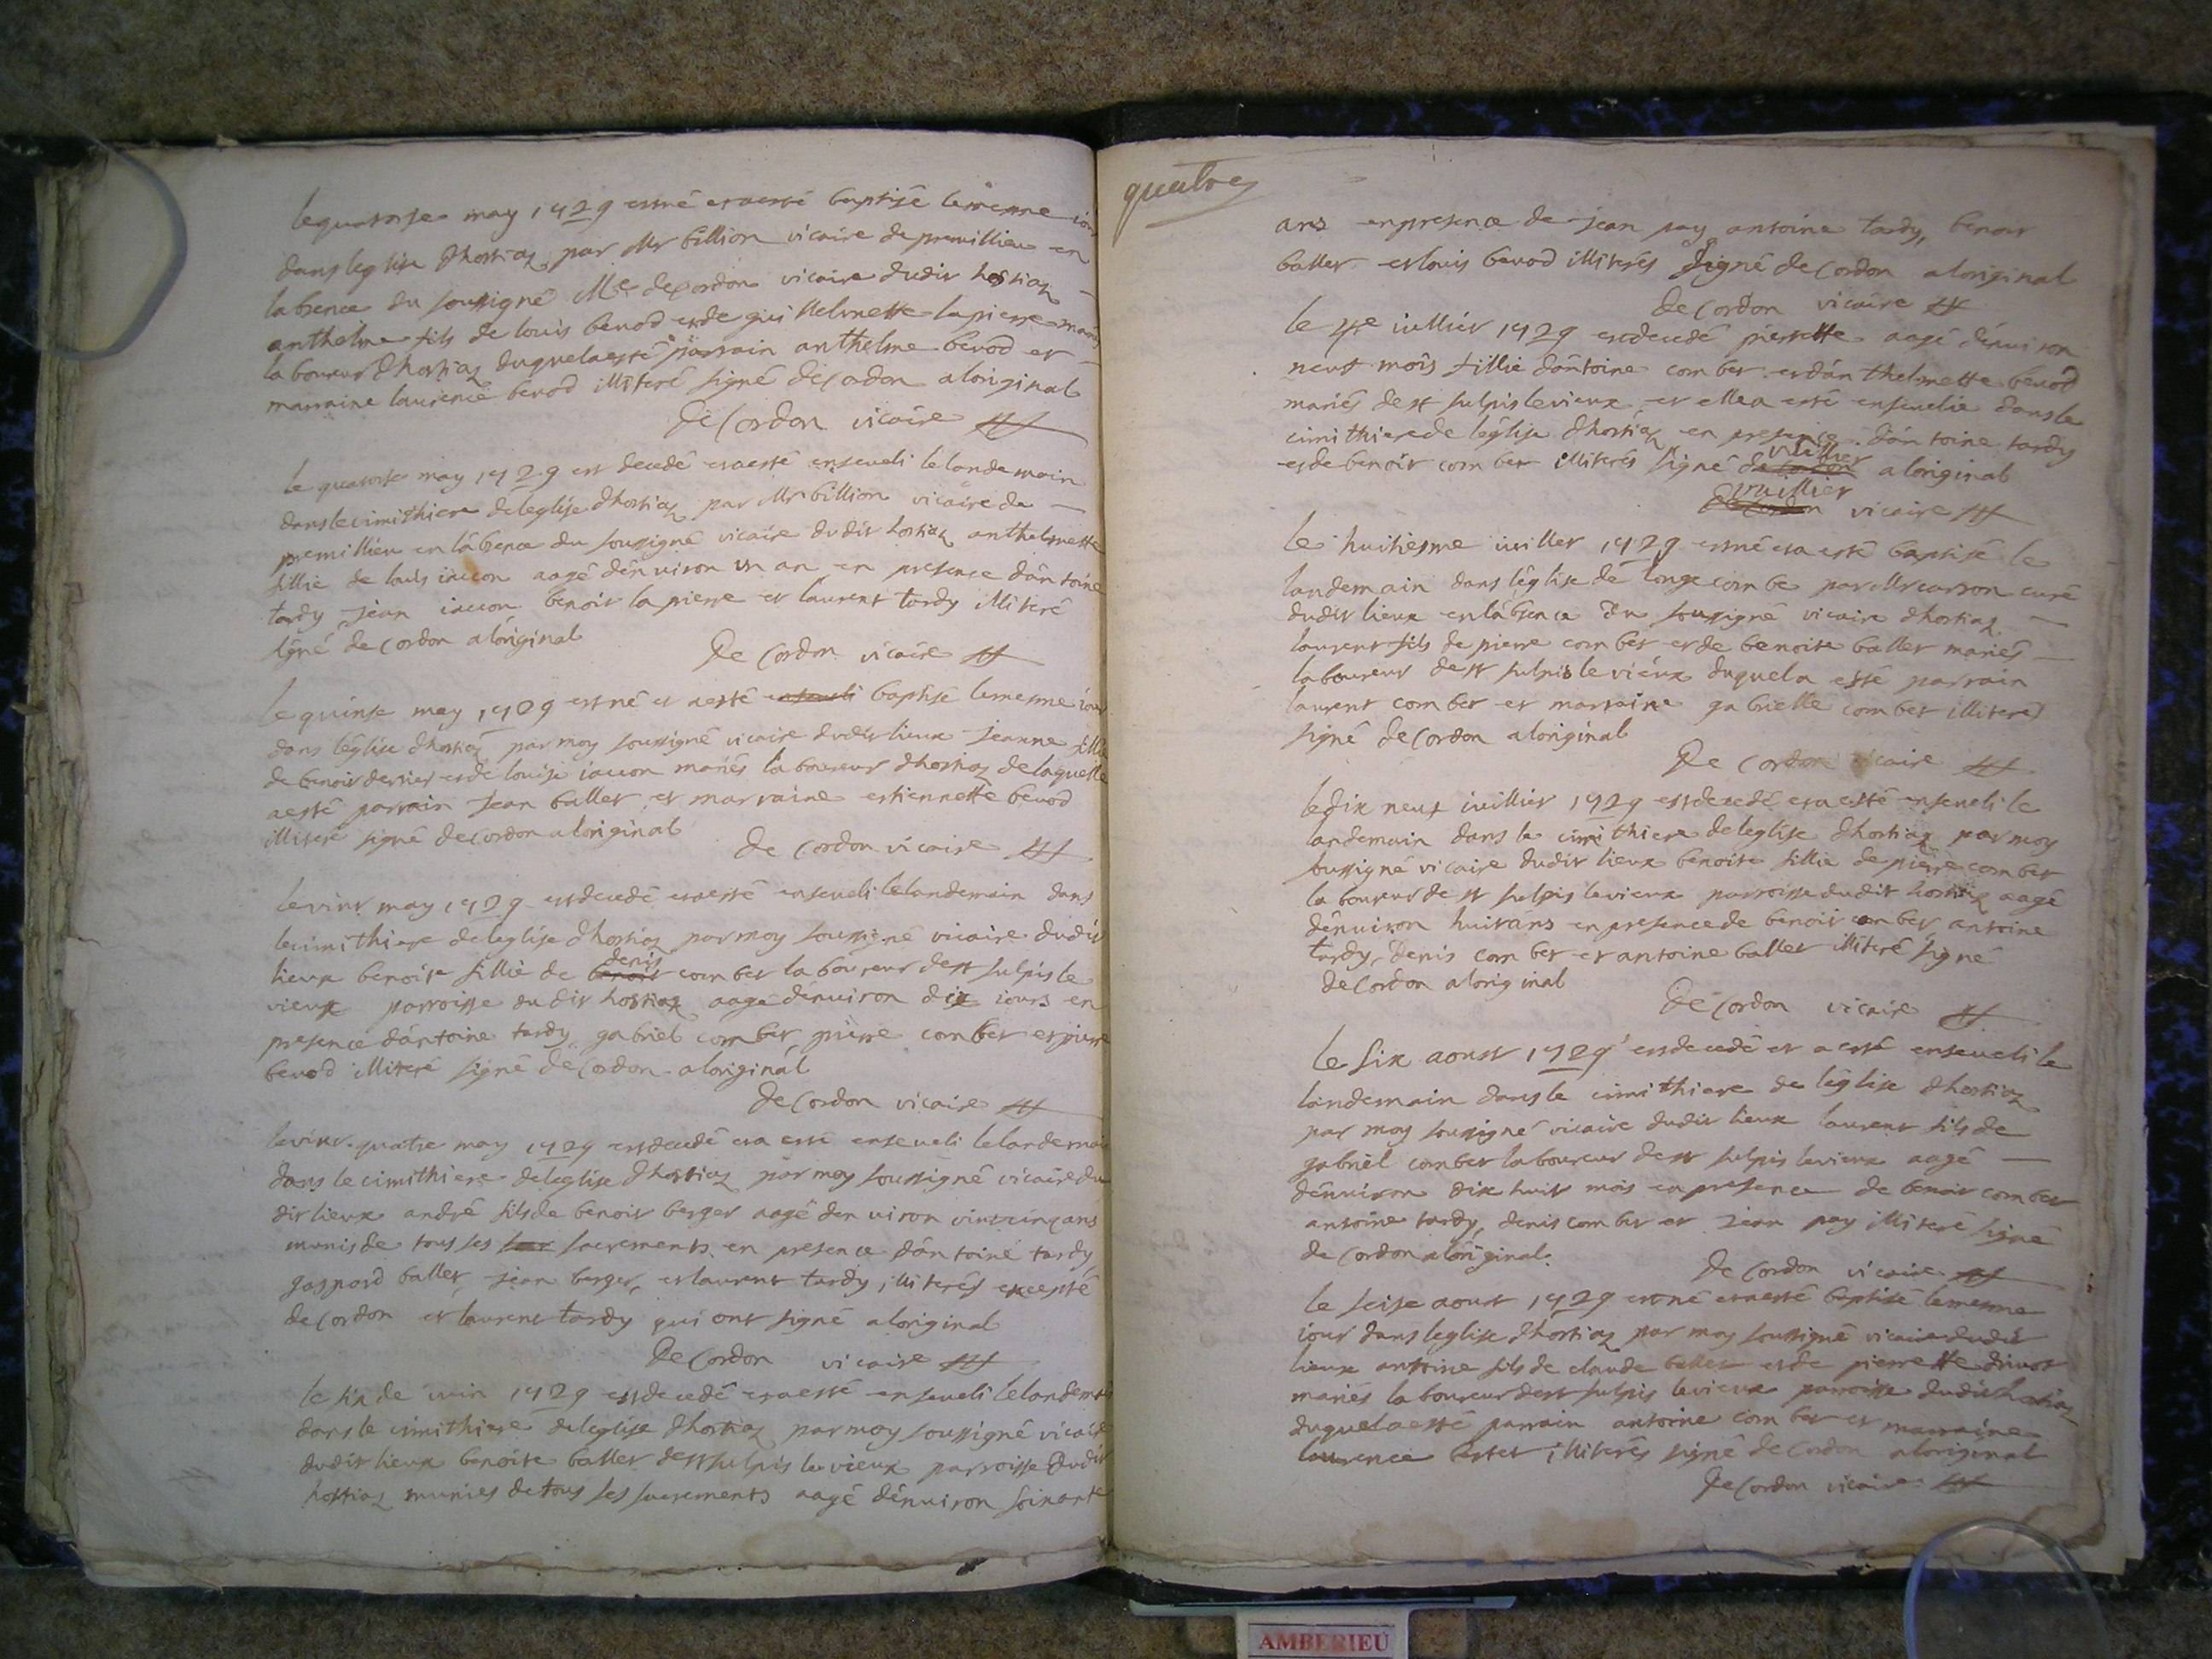 le quatorse may 1729 est né et a esté baptisé le mesme iour
dans leglise dhostiaz par Mr billion vicaire de premillieu en
labsence du soussigné Mre decordon vicaire dudit hostiaz
anthelme fils de louis bevod et de guillelmette lapierre mariés
laboureur dhostiaz duquel a esté parrain anthelme bevod et
marraine laurence bevod illiteré signé decordon a loriginal
De Cordon vicaire
le quatorse may 1729 est decedé et a esté enseveli le landemain
dans le cimithiere de leglise dhostiaz par Mr billion vicaire de
premillieu en labsence du soussigné vicaire dudit hostiaz anthelmette
fillie de louis iuccon aagé denuiron un an en presence dantoine
tardy jean iuccon benoit lapierre et laurent tardy illiteré
signé decordon a loriginal
De Cordon vicaire
le quinse may 1729 est né et a esté enseveli baptisé le mesme iour
dans leglise dhostiaz par moy soussigné vicaire dudit lieux jeanne fillie
de benoit dervier et de louise iuccon mariés laboureur dhostiaz de laquelle
a esté parrain jean ballet et marraine estiennette bevod
illiteré signé decordon a loriginal
De Cordon vicaire
le vint may 1729 est decedé et a esté enseveli le landemain dans
le cimithiere de leglise dhostiaz par moy soussigné vicaire dudit
denis
lieux benoite fillie de benoit combet laboureur de st sulpis le
vieux parroisse dudit hostiaz aagé denuiron dix iours en
presence dantoine tardy gabriel combet, pierre combet et pierre
bevod illiteré signé decordon a loriginal
De Cordon vicaire
le vint quatre may 1729 est decedé et a esté enseveli le landemain
dans le cimithiere de leglise dhostiaz par moy soussigné vicaire du
dit lieux andré fils de benoit berger aagé denuiron vint cinq ans
munis de tous ses sacrements en presence dantoine tardy,
gaspard ballet, jean berger, et laurent tardy, illiterés excepté
decordon et laurent tardy qui ont signé a loriginal
De Cordon vicaire
le six de iuin 1729 est decedé et a esté enseveli le landemain
dans le cimithiere de leglise dhostiaz par moy soussigné vicaire
dudit lieux benoite ballet de st sulpis le vieux parroisse dudit
hostiaz munies de tous ses sacrements aagé denuiron soixante
quatre
ans en presence de jean pay antoine tardy, benoit
ballet et louis bevod illiterés signé decordon a loriginal
De Cordon vicaire
le 4e iuillier 1729 est decedé pierrette aagé denuiron
neuf mois fillie dantoine combet et danthelmette bevod
mariés de st sulpis le vieux et elle a esté enseuelie dans le
cimithiere de leglise dhostiaz en presence dantoine tardy
vuillier
et de benoit combet illiterés signé decordon a loriginal
vuillier
De Cordon vicaire
le huitiesme iuillet 1729 est né et a esté baptisé le
landemain dans leglise de longecombe par Mr carron curé
dudit lieux en labsence du soussigné vicaire dhostiaz
laurent fils de pierre combet et de benoite ballet mariés
laboureur de st sulpis le vieux duquel a esté parrain
laurent combet et marraine gabrielle combet illiteré
signé decordon a loriginal
De Cordon vicaire
le dix neuf iuillier 1729 est decedé et a esté enseveli le
landemain dans le cimithiere de leglise dhostiaz par moy
soussigné vicaire dudit lieux benoite fillie de pierre combet
laboureur de st sulpis le vieux parroisse dudit hostiaz aagé
denuiron huit ans en presence de benoit combet, antoine
tardy, denis combet et antoine ballet illiteré signé
decordon a loriginal
De Cordon vicaire
le six aoust 1729 est decedé et a esté enseveli le
landemain dans le cimithiere de leglise dhostiaz
par moy soussigné vicaire dudit lieux laurent fils de
gabriel combet laboureur de st sulpis le vieux aagé
denuiron dix huit mois en presence de benoit combet
antoine tardy, denis combet et jean pay illiteré signé
decordon a loriginal.
De Cordon vicaire
le seise aoust 1729 est né et a esté baptisé le mesme
iour dans leglise dhostiaz par moy soussigné vicaire dudit
lieux antoine fils de claude ballet et de pierrette
mariés laboureur de st sulpis le vieux parroisse dudit hostiaz
duquel a esté parrain antoine combet et marraine
laurence illiterés signé decordon a loriginal
De Cordon vicaire
AMBERIEU